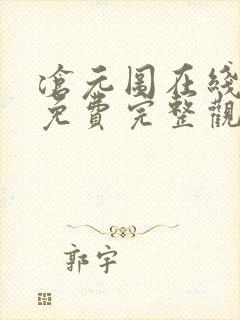 滄元图在线
免費完整觀
郭宇